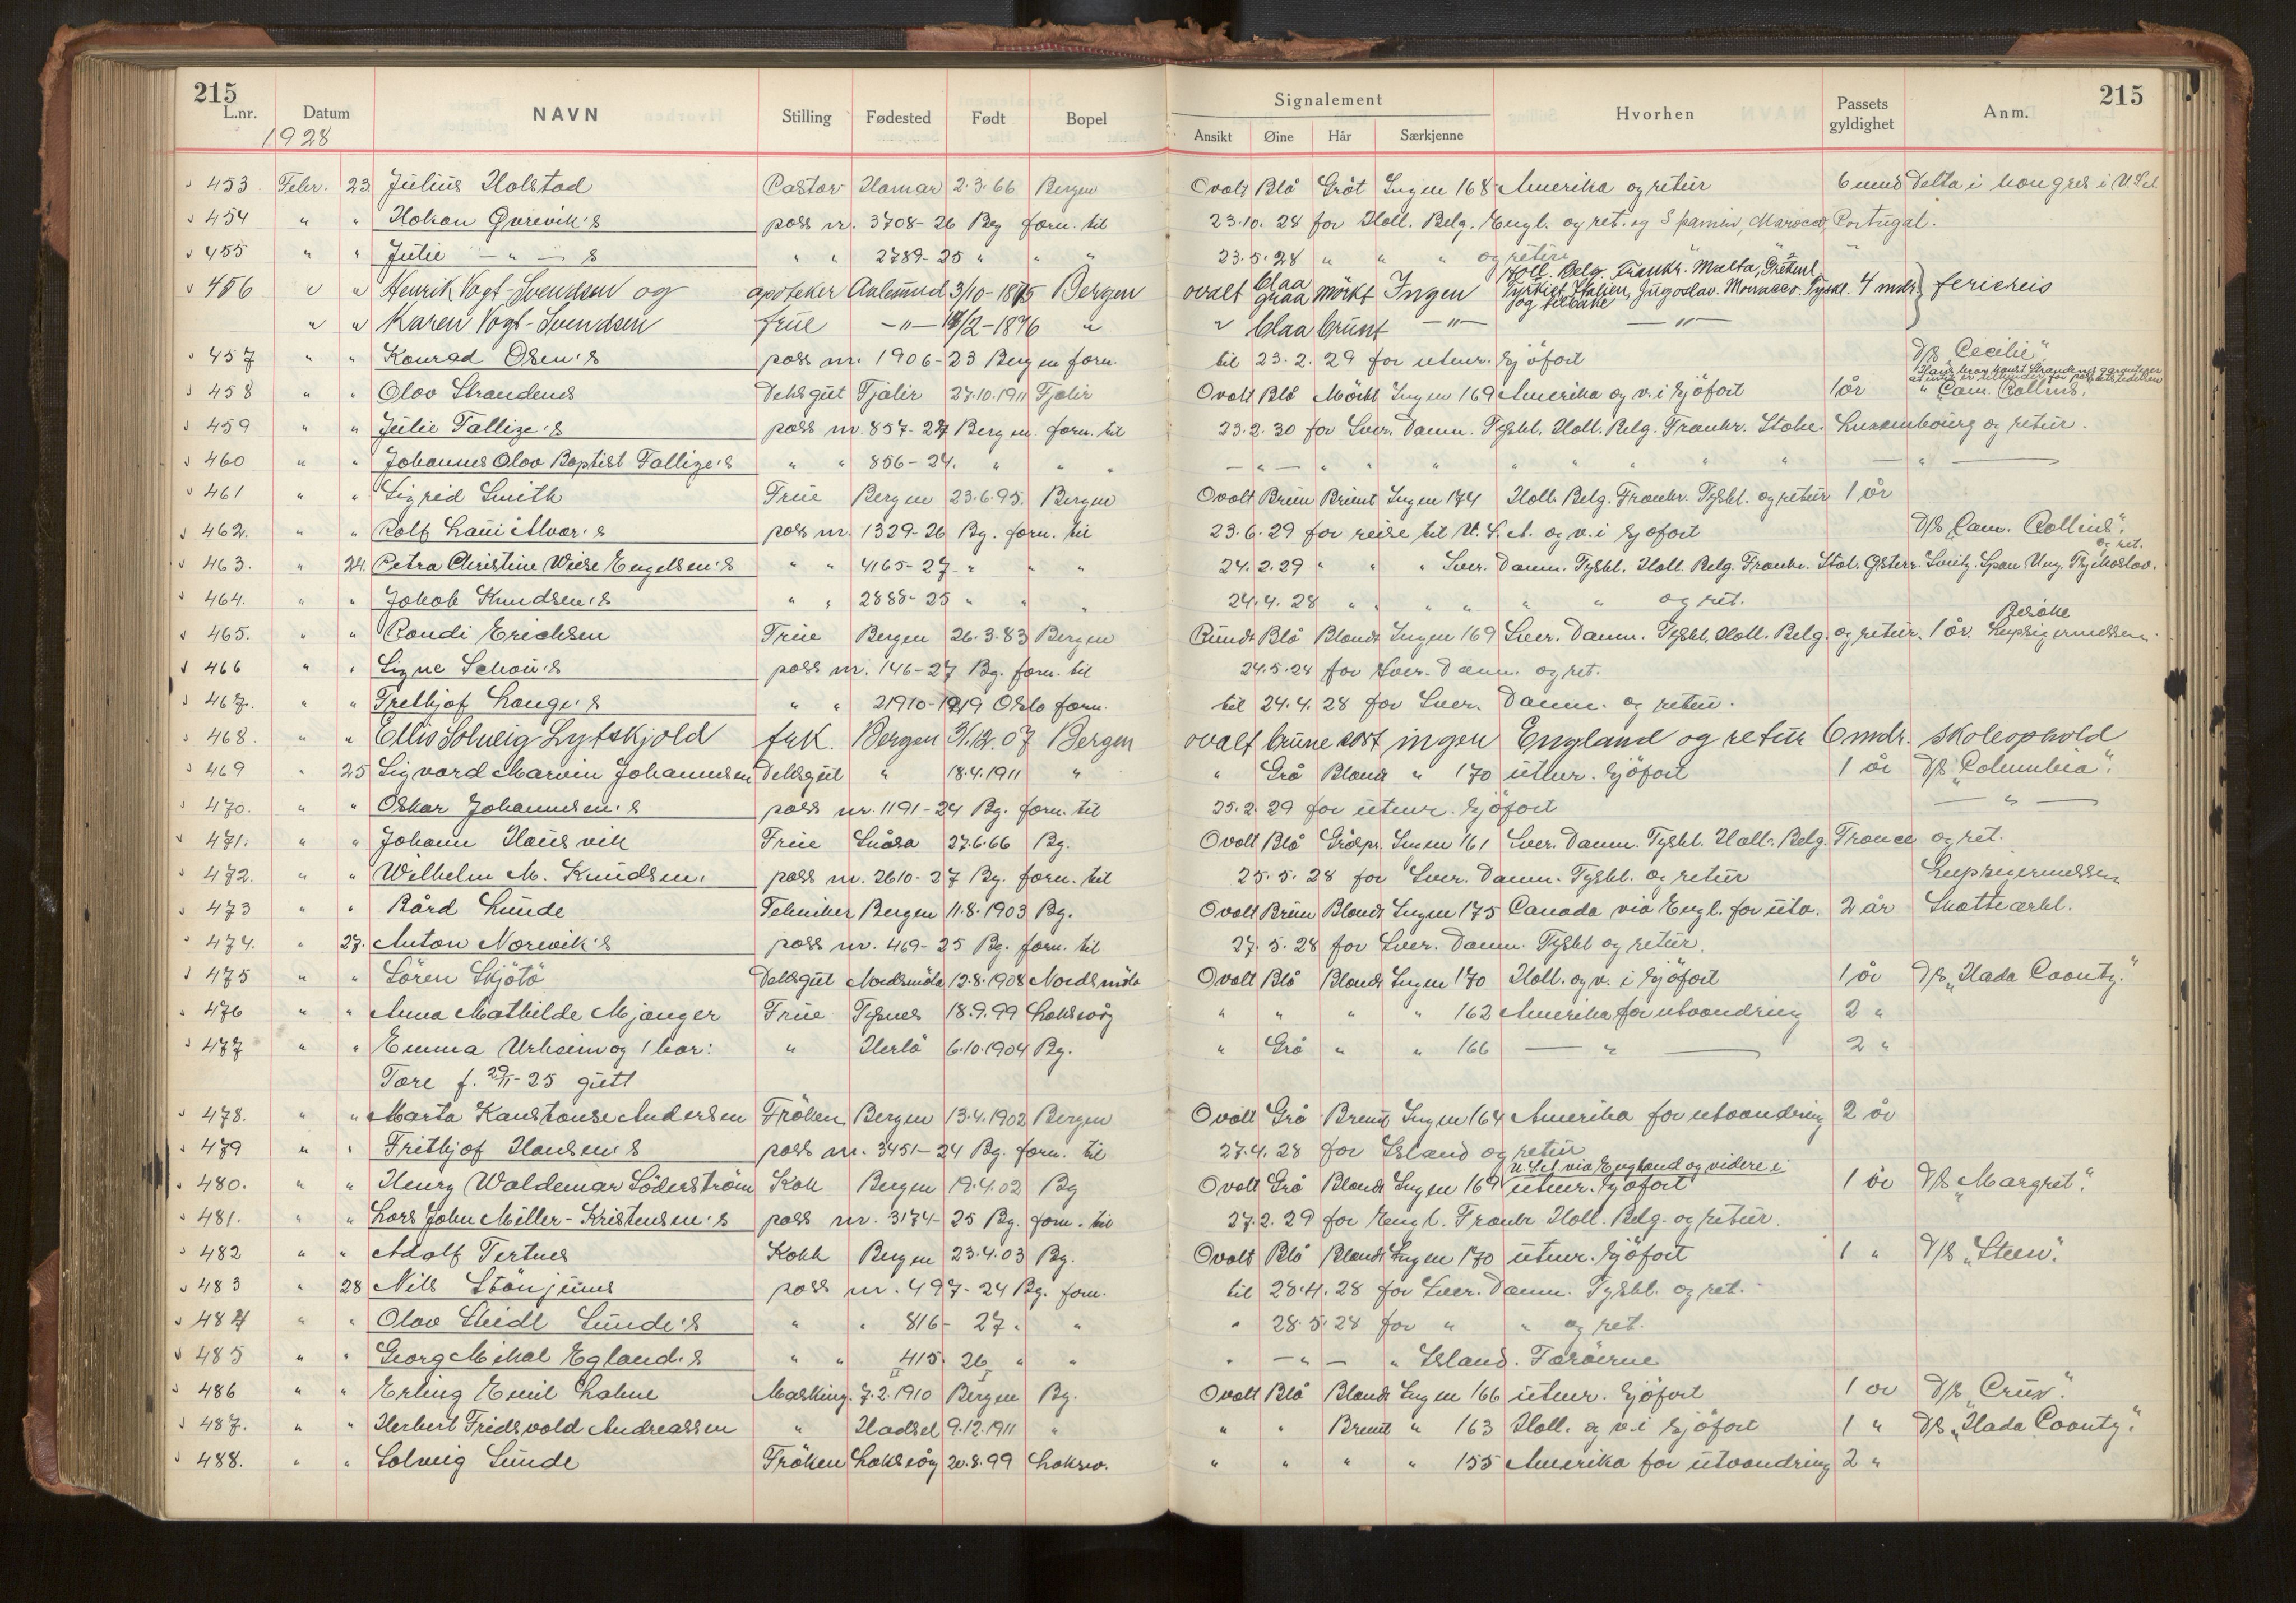 215 215
L.nr. Datum NAVN Stilling Fødested Født Bopel Signalement Hvorhen Passets gyldighet Anm.
Ansikt Øine Hår Særkjenne
1928
453. Febr. 23. Julius Halstad Pastor Hamar 2.3.66 Bergen Ovalt Blå Gråt Ingen 168 Amerika og retur 6 mnd Delta i kongres i U.S.A.
454 " " Håkon Qvrevik's pass nr. 3708-26 Bg forn. til 23.10.28 for Holl. Belg. Engl. og ret. og Spanien, Marocco, Portugal.
455 " " Julie — " — s " " 2789-25 " " " 23.5.28 " " " og retur " " "
456 " " Henrik Vogt-Svendsen og apoteker 3/10-1875 Bergen ovalt blaa graa mörkt Ingen Holl. Belg. Frankr. Malta, Grekenl. Tyrkiet, Italien, Jugoslav. Monacco. Tyskl. og tilbake 4 mdr. feriereis
" " Karen Vogt-Svendsen frue —"— /2-1896 " " blaa brunt —"— —"—
457 " " Konrad Osen's pass nr. 1906-23 Bergen forn. til 23.2.29 for utenr. sjöfart D/S "Cecilie".
458 " " Olav Strandenes Deksgut Fjaler 27.10.1911 Fjaler Ovalt Blå Mörkt Ingen 169 Amerika og v. i sjöfart 1 år " "Cam. Rollins".
459 " " Julie Fallize's pass nr. 857-24 Bergen forn. til 23.2.30 for Sver. Danm. Tyskl. Holl. Belg. Frankr. Italie. Luxembourg og retur.
460 " " Johannes Olav Baptist Fallize's " " 856-24. " " " — " — " " " " " " " " — " —
461 " " Sigrid Smith Frue Bergen 23.6.95. Bergen Ovalt Brun Brunt Ingen 174 Holl. Belg. Frankr. Tyskl. og retur 1 år
462. " " Rolf Laui Alvær's pass nr. 1329-26 Bg. forn. til 23.6.29 for reise til U.S.A. og v. i sjöfart D/S "Cam. Rollins".
463. " 24. Petra Christine Wiese Engelsen's " " 4165-27 " " " 24.2.29 " " " Sver. Danm. Tyskl. Holl. Belg. Frankr. Ital. Österr. Sveitz. Span. Ung. Tsjekoslov. og ret.
464. " " Jakob Knudsen's " " 2888-25 " " " 24.4.28 " " " " " " og ret.
465. " " Randi Erichsen Frue Bergen 26.3.83 Bergen Rundt Blå Blondt Ingen 169 Sver. Danm. Tyskl. Holl. Belg. og retur. 1 år. Besöke Leipzigermessen.
466 " " Signe Schou's pass nr. 146-27 Bg. forn. til 24.5.28 for Sver. Danm. og ret.
467. " " Frithjof Lange's " " 21910-1919 Oslo forn. til 24.4.28 for Sver. Danm. og retur.
468. " " Ellis Solveig Lytskjold frk. Bergen 3/12.07 Bergen ovalt brune sort ingen England og retur 6 mdr. skoleophold
469 " 25 Sigvard Marvin Johannesen Deksgut " 18.4.1911 " " Grå Blondt " 170 utenr. sjöfart 1 år D/S "Columbia".
470. " " Oskar Johannesen's pass nr. 1191-24 Bg. forn. til 25.2.29 for utenr. sjöfart — " —
471. " " Johann Hausvik Frue Snåsa 27.6.66 Bg. Ovalt Blå Gråspr. Ingen 161 Sver. Danm. Tyskl. Holl. Belg. France og ret.
472. " " Wilhelm M. Knudsen. pass nr. 2610-27 Bg. forn. til 25.5.28 for Sver. Danm. Tyskl. og retur Leipzigermessen
473 " " Bård Lunde Tekniker Bergen 11.8.1903 Bg. Ovalt Brun Blondt Ingen 175 Canada via Engl. for utv. 2 år Skatteatt.
474. " 27. Anton Norevik's pass nr. 469-25 Bg. forn. til 27.5.28 for Sver. Danm. Tyskl og retur.
475 " " Sören Skjötö Deksgut 12.8.1908 Ovalt Blå Blondt Ingen 170 Holl. og v. i sjöfart 1 år D/S "Hada County".
476 " " Anna Mathilde Mjanger Frue Tysnes 18.9.99 Laksevåg " " " " 162 Amerika for utvandring 2 "
477 " " Emma Urheim og 1 bar: " Herlö 6.10.1904 Bg. " Grå " " 166 — " — 2 "
Tore f. 29/1-25 gutt
478. " " Marta Konstanse Andersen Fröken Bergen 13.4.1902 Bergen Ovalt Grå Brunt Ingen 164 Amerika for utvandring 2 år
479 " " Frithjof Hansen's pass nr. 3451-24 Bg. forn. til 27.4.28 for Island og retur
480. " " Henry Waldemar Söderström Kok Bergen 19.4.02 Bg Ovalt Grå Blondt Ingen 169 U.S.A. via England og videre i utenr. sjöfart 1 år D/S "Margret".
481. " " Lars John Miller-Kristensen's pass nr. 3174-25 Bg. forn. til 27.2.29 for Engl. Frankr Holl. Belg. og retur.
482 " " Adolf Tertnes Kokk Bergen 23.4.03 Bg. Ovalt Blå Blondt Ingen 170 utenr. sjöfart 1 " D/S "Steen".
483 " 28 Nils Stönjums pass nr. 497-24 Bg. forn. til 28.4.28 for Sver. Danm. Tyskl. og ret.
484 " " Olav Sunde's " " 816-27. " " 28.5.28 for " " og ret.
485 " " Georg Mikal Egland's " " 415. 26 " " " — " — " Island. Færöerne
486 " " Erling Emil Lahne Masking. 7.2.1910 Bergen Bg. Ovalt Blå Blondt Ingen 166 utenr. sjöfart 1 år D/S "Crux".
487. " " Herbert Fridsvold Andreassen " Hadsel 9.12.1911 " " " Brunt " 163 Holl. og v. i sjöfart 1 " D/S "Hada County".
488. " " Solveig Sunde Fröken Laksevåg 20.8.99 Laksev. " " " " 155 Amerika for utvandring 2 "